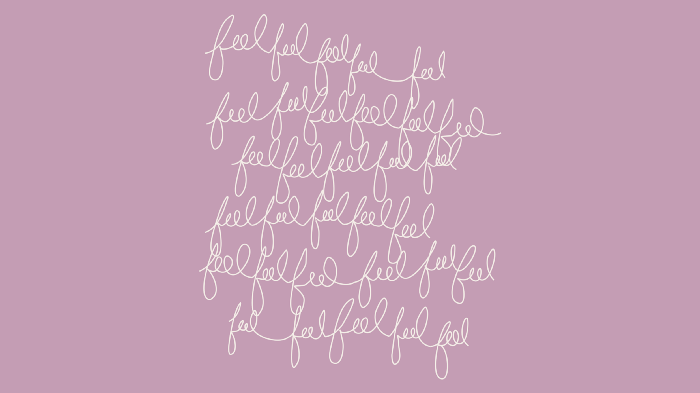 feel feel feel feel feel
feel feel feel feel feel feel
feel feel feel feel feel
feel feel feel feel feel
feel feel feel feel feel feel
feel feel feel feel feel